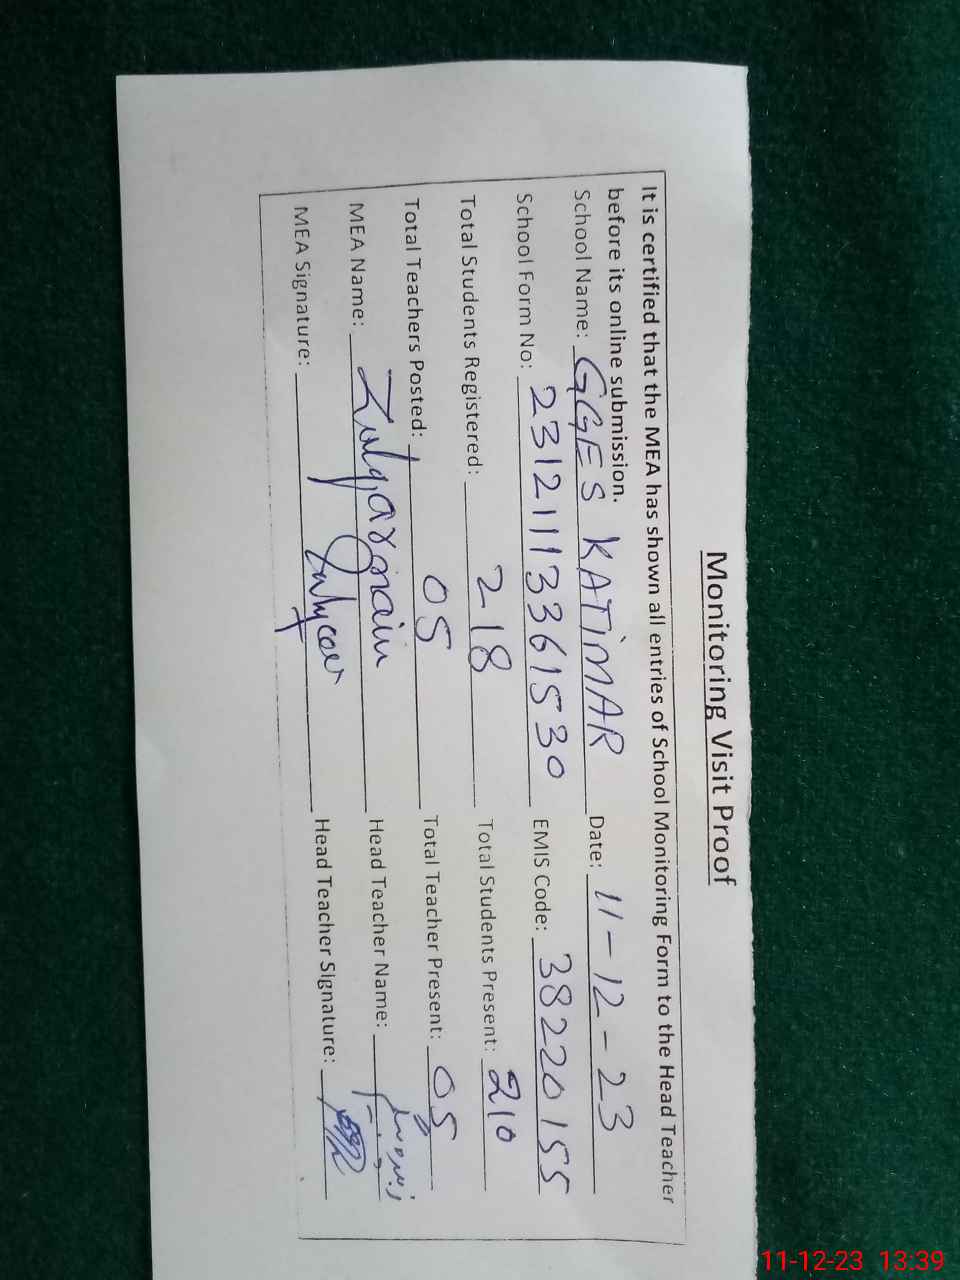 Monitoring Visit Proof
It is certified that the MEA has shown all entries of School Monitoring Form to the Head Teacher
before its online submission.
School Name: GGES KATIMAR Date: 11-12-23
School Form No: 231211133615 30 EMIS Code: 38220155
Total Students Registered: 218 Total Students Present: 210
Total Teachers Posted: 05 Total Teacher Present: 05
MEA Name: Zulqarnain Head Teacher Name:
MEA Signature: Head Teacher Signature:
11-12-23 13:39